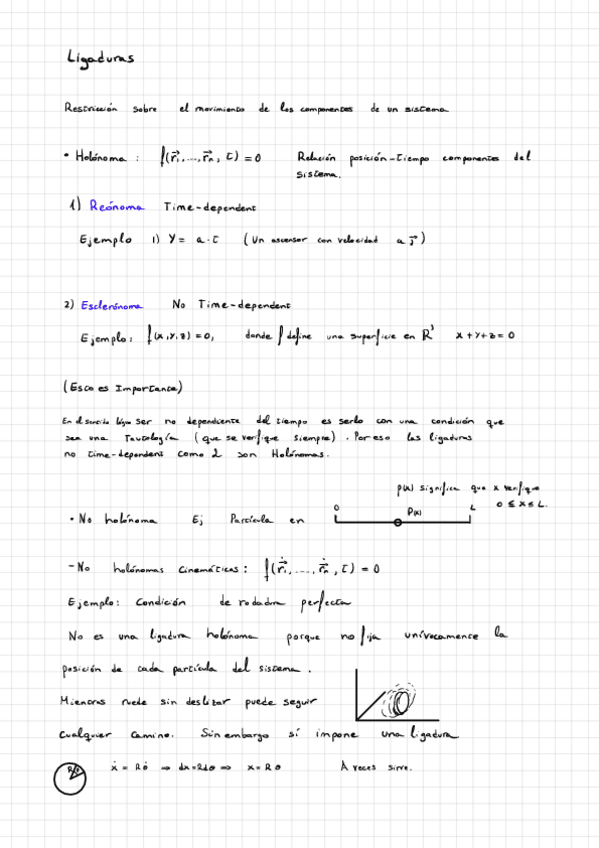 Ligaduras
Restricción sobre el movimiento de los componentes de un sistema
• Holónoma : f(r⃗₁,...,r⃗ₙ, t) = 0 Relación posición-tiempo componentes del
sistema.
1) Reónoma Time-dependent
Ejemplo 1) Y = a·t (Un ascensor con velocidad a j⃗)
2) Esclerónoma No Time-dependent
Ejemplo: f(x,y,z) = 0, donde f define una superficie en R³ x+y+z=0
(Esto es Importante)
En el sentido lógico ser no dependiente del tiempo es serlo con una condición que
sea una Tautología (que se verifique siempre). Por eso las ligaduras
no time-dependent como 2 son Holónomas.
p(x) significa que x verifique
0 ≤ x ≤ L.
• No holónoma Ej Partícula en 0 P(x) L
- No holónomas cinemáticas: f(ṙ⃗₁,....,ṙ⃗ₙ, t) = 0
Ejemplo: Condición de rodadura perfecta
No es una ligadura holónoma porque no fija unívocamente la
posición de cada partícula del sistema.
Mientras ruede sin deslizar puede seguir
cualquier camino. Sin embargo sí impone una ligadura
R θ ẋ = Rθ̇ ⇒ dx=Rdθ ⇒ x=Rθ A veces sirve.